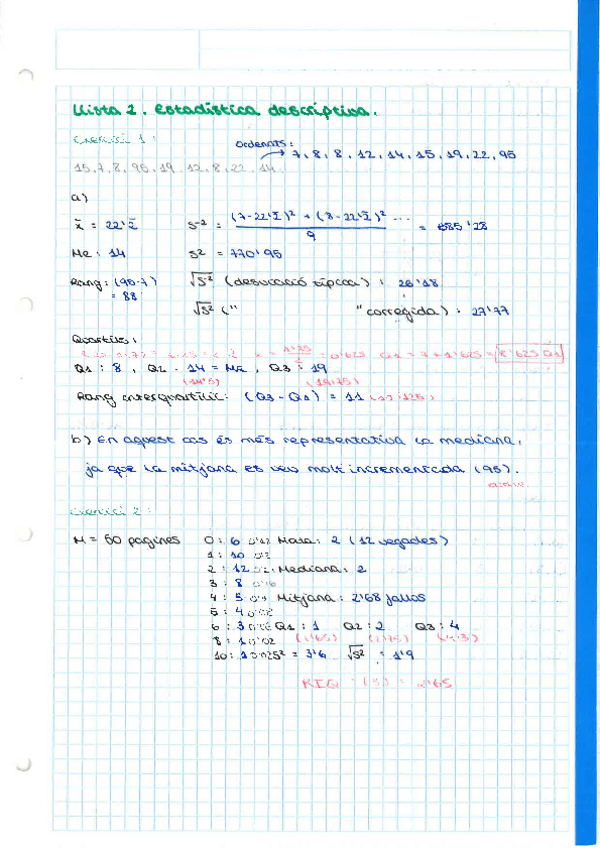 Llista 2. Estadística descriptiva.
Exercici 1:
Ordenats:
7, 8, 8, 12, 14, 15, 19, 22, 95
15, 7, 8, 95, 19, 12, 8, 22, 14
a)
x̄ = 22'2̄ S⁻² = (7-22'2̄)² + (8-22'2̄)² ... / 9 = 685'28
Me: 14 S² = 770'95
Rang: (95-7) √S⁻² (desviació típica): 26'18
= 88
√S² (" "corregida): 27'77
Quartils:
= 0'625 Q1 = 7 + 1'625 = 8'625 Q1
Q1: 8, Q2 = 14 = Me, Q3: 19
(14'5)
Rang interquartílic: (Q3-Q1) = 11
b) En aquest cas és més representativa la mediana,
ja que la mitjana es veu molt incrementada (95).
Exercici 2:
M = 60 pagines 0: 6 Moda: 2 (12 vegades)
1: 10
2: 12 Mediana: 2
3: 8
4: 5 Mitjana: 2'68 fallos
5: 4
6: 3 Q1: 1 Q2: 2 Q3: 4
8: 1 0'02 (1'65) (1'75)
10: 1 S² = 3'6 √S² = 1'9